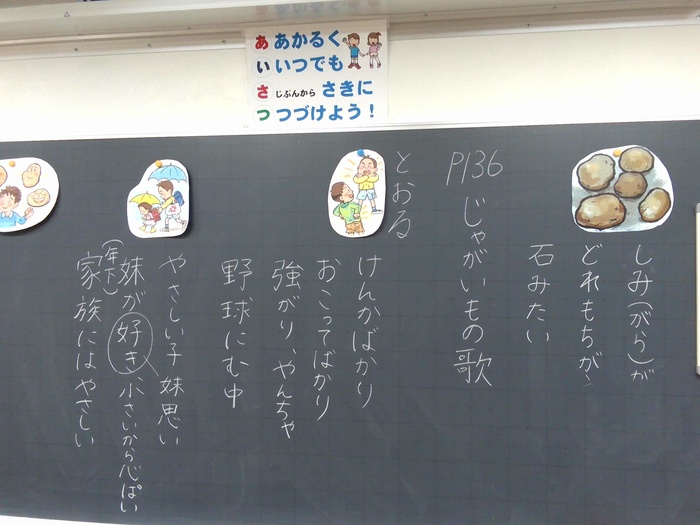 あ あかるく
い いつでも
さ じぶんから さきに
つ つづけよう！
しみ(がら)が
どれもちがう
石みたい
P136 じゃがいもの歌
とおる
けんかばかり
おこってばかり
強がり、やんちゃ
野球にむ中
やさしい子 妹思い
妹が好き 小さいから心ぱい
(年下)
家族にはやさしい